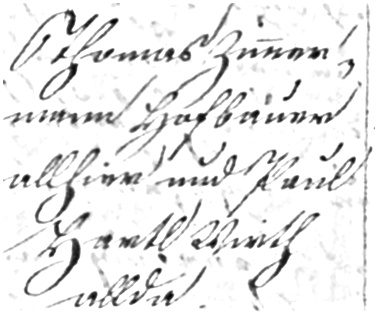 Thomas Zimer-
mann Hofbauer
allhier und Paul
Hartl Wirth
allda